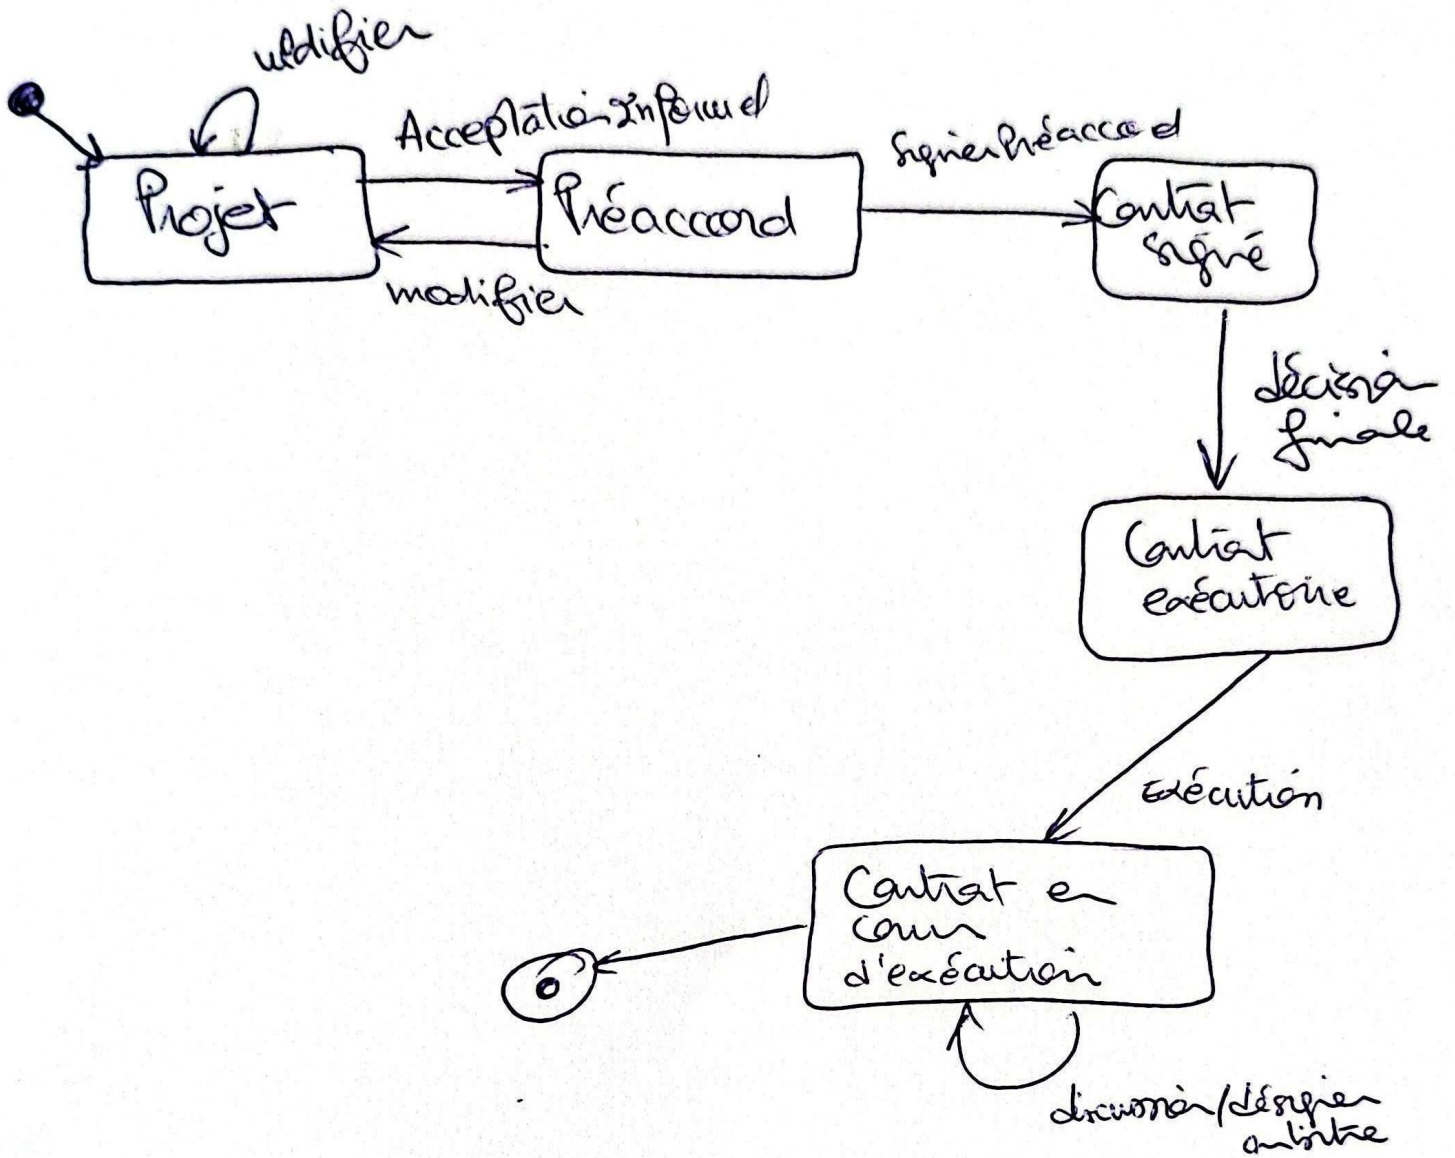 modifier
Acceptation Informel
signer Préaccord
Projet
Préaccord
Contrat
signé
modifier
décision
finale
Contrat
exécutoire
Exécution
Contrat en
cours
d'exécution
discussion/désigner
arbitre